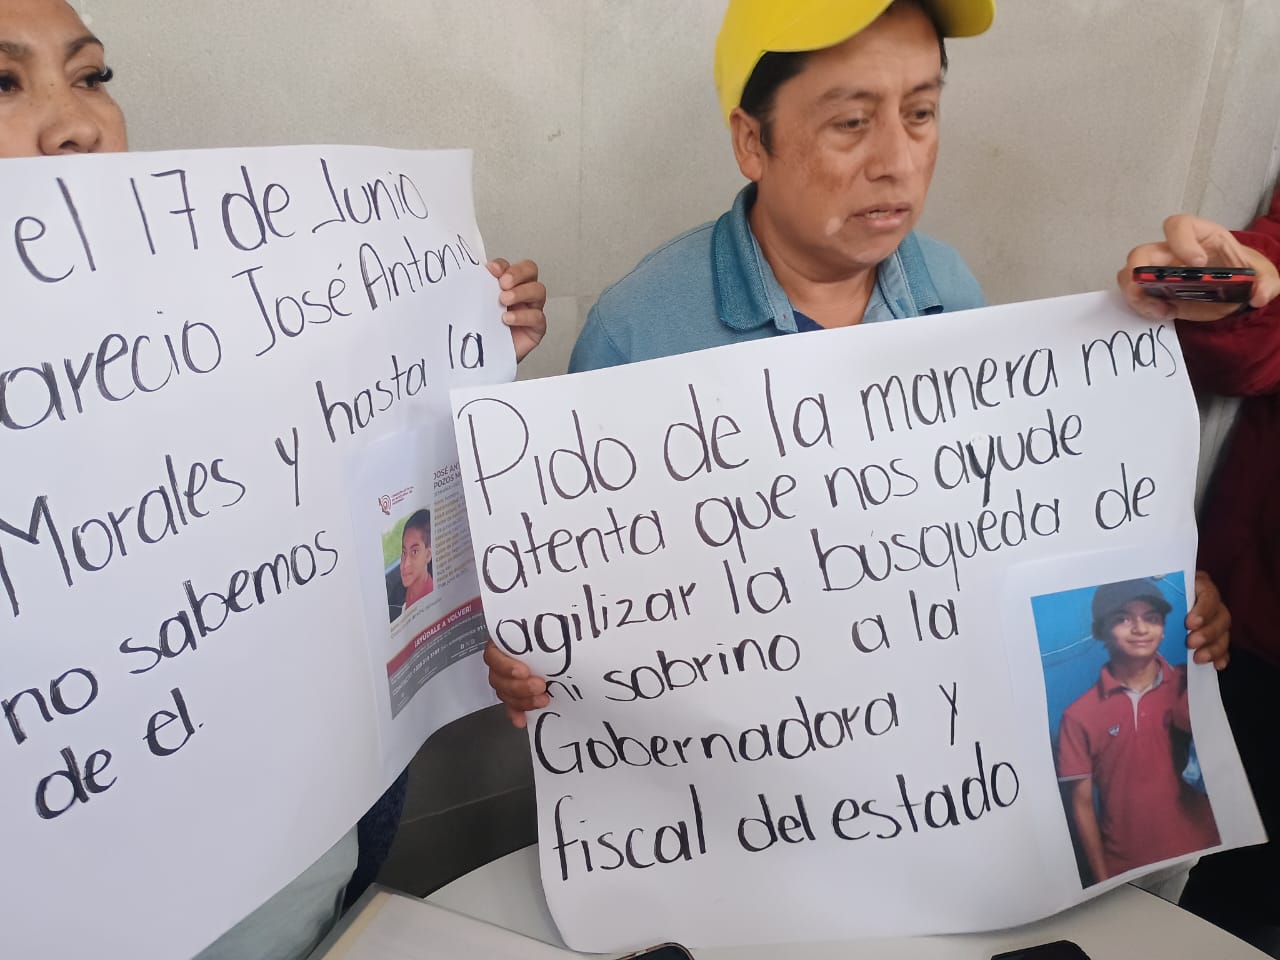 el 17 de Junio
arecio José Antonio
Morales y hasta la
no sabemos
de el.
JOSÉ AN
POZOS M
¡AYÚDALE A VOLVER!
Pido de la manera mas
atenta que nos ayude
agilizar la búsqueda de
mi sobrino a la
Gobernadora y
fiscal del estado